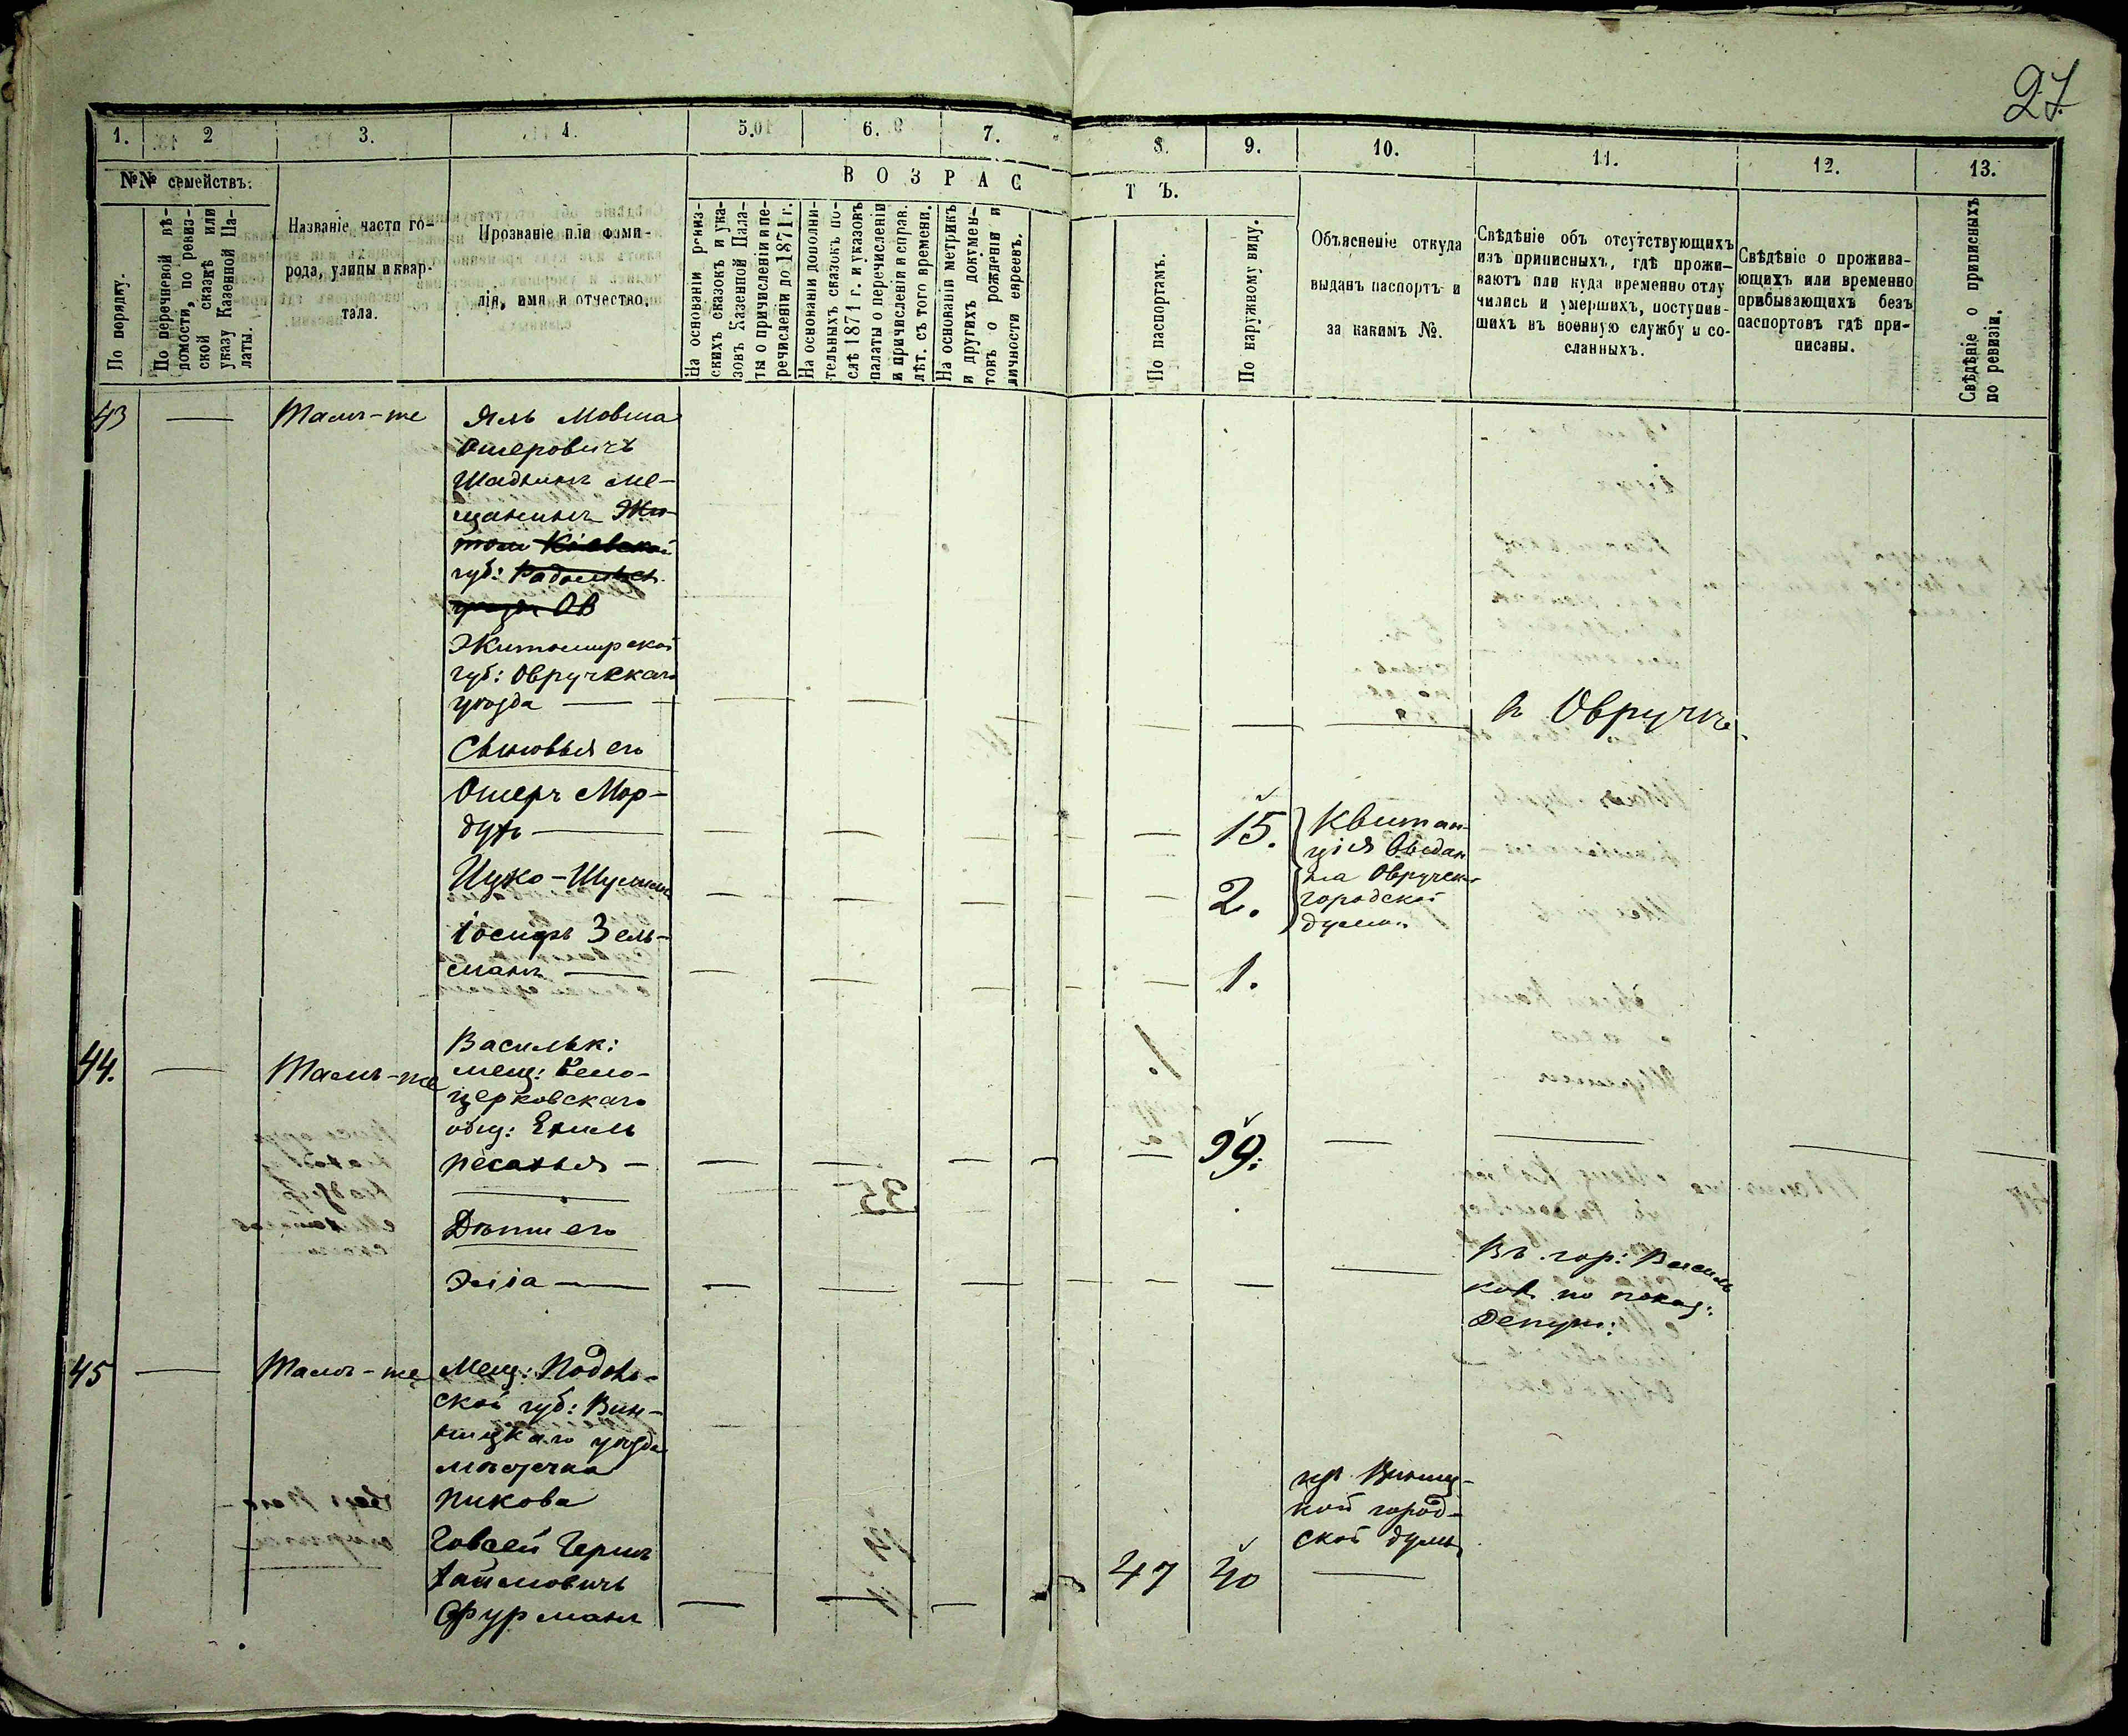 27.
1.
2
3.
4.
5.
6.
7.
8.
9.
10.
11.
12.
13.
№№ семействъ:
В О З Р А С
Т Ъ.
По порядку.
По перечневой вѣ-
домости, по ревиз-
ской сказкѣ или
указу Казенной Па-
латы.
Названіе части го-
рода, улицы и квар-
тала.
Прозваніе или фами-
лія, имя и отчество.
На основаніи ревиз-
скихъ сказокъ и ука-
зовъ Казенной Пала-
ты о причисленіи и пе-
речисленіи до 1871 г.
На основаніи дополни-
тельныхъ сказокъ по-
слѣ 1871 г. и указовъ
палаты о перечисленіи
и причисленіи и справ.
лѣт. съ того времени.
На основаніи метрикъ
и другихъ докумен-
товъ о рожденіи и
личности евреевъ.
По паспортамъ.
По наружному виду.
Объясненіе откуда
выданъ паспортъ и
за какимъ №.
Свѣдѣніе объ отсутствующихъ
изъ приписныхъ, гдѣ прожи-
ваютъ или куда временно отлу
чились и умершихъ, поступив-
шихъ въ военную службу и со-
сланныхъ.
Свѣдѣніе о прожива-
ющихъ или временно
прибывающихъ безъ
паспортовъ гдѣ при-
писаны.
Свѣдѣніе о приписныхъ
по ревизіи.
43 — Тамъ-же
Мовша
Ошеровичъ
ме-
щанинъ Жи-
том Кіевской
губ: Радомысл
уѣзда ОВ
Житомирской
губ: Овручскаго
уѣзда —
Овручѣ
Сыновья его
Ошеръ Мор-
духъ —
15.
Квитан-
ція выдан
на Овручск
городской
думой
Ицко-Шулим
2.
Іосифъ Зель-
манъ —
1.
44. — Тамъ-же
Васильк:
мещ: Бело-
церковскаго
общ:
39:
Дѣти его
—
Въ гор: Василь
ков по показ:
Депут:
45 — Тамъ-же
Мещ: Подоль-
ской губ: Вин-
ницкаго уѣзда
мѣстечка
Пикова
Говсей Герш
Хаимовичъ
Фурманъ
47 40
Винниц-
кой город-
ской думы